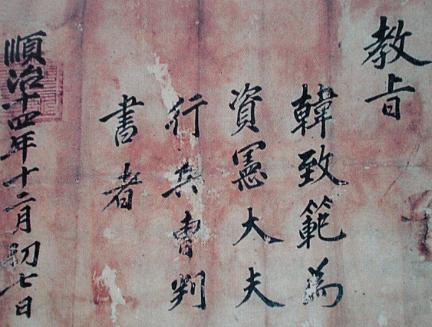 教旨
韓致範為
資憲大夫
行兵曹判
書者
順治十四年十二月初七日